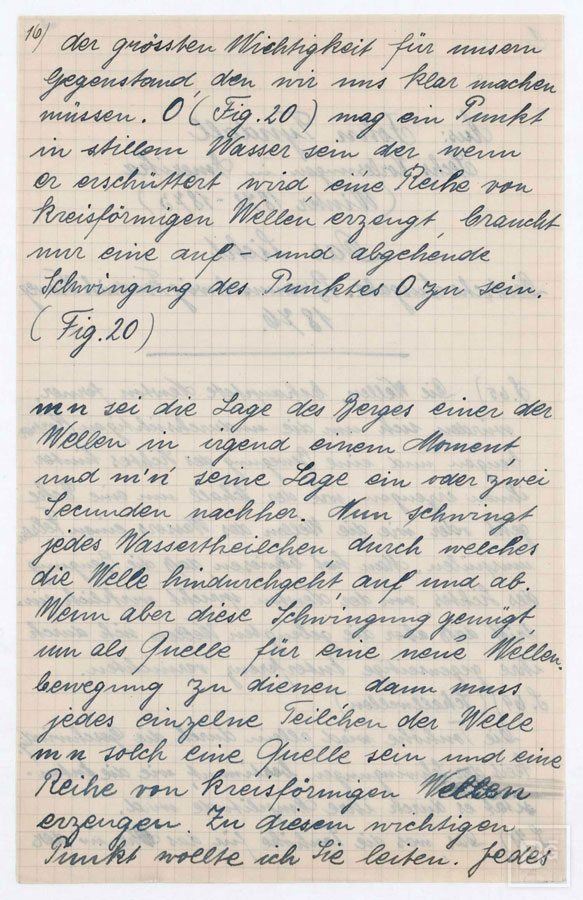 16)
der grössten Wichtigkeit für unsern
Gegenstand, den wir uns klar machen
müssen. O (Fig. 20) mag ein Punkt
in stillem Wasser sein der wenn
er erschüttert wird eine Reihe von
kreisförmigen Wellen erzeugt, braucht
nur eine auf- und abgehende
Schwingung des Punktes O zu sein.
(Fig. 20)
m n sei die Lage des Berges einer der
Wellen in irgend einem Moment,
und m'n' seine Lage ein oder zwei
Secunden nachher. Nun schwingt
jedes Wassertheilchen, durch welches
die Welle hindurchgeht, auf und ab.
Wenn aber diese Schwingung genügt,
um als Quelle für eine neue Wellen-
bewegung zu dienen dann muss
jedes einzelne Teilchen der Welle
m n solch eine Quelle sein und eine
Reihe von kreisförmigen Wellen
erzeugen. Zu diesem wichtigen
Punkt wollte ich Sie leiten. Jedes